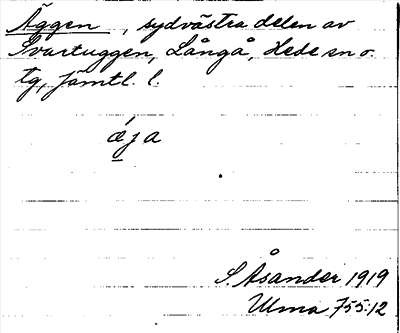 Äggen, sydvästra delen av
Svartuggen, Långå, Hede sn o.
tg, Jämtl. l.
ǽja
S. Åsander 1919
Ulma 755:12